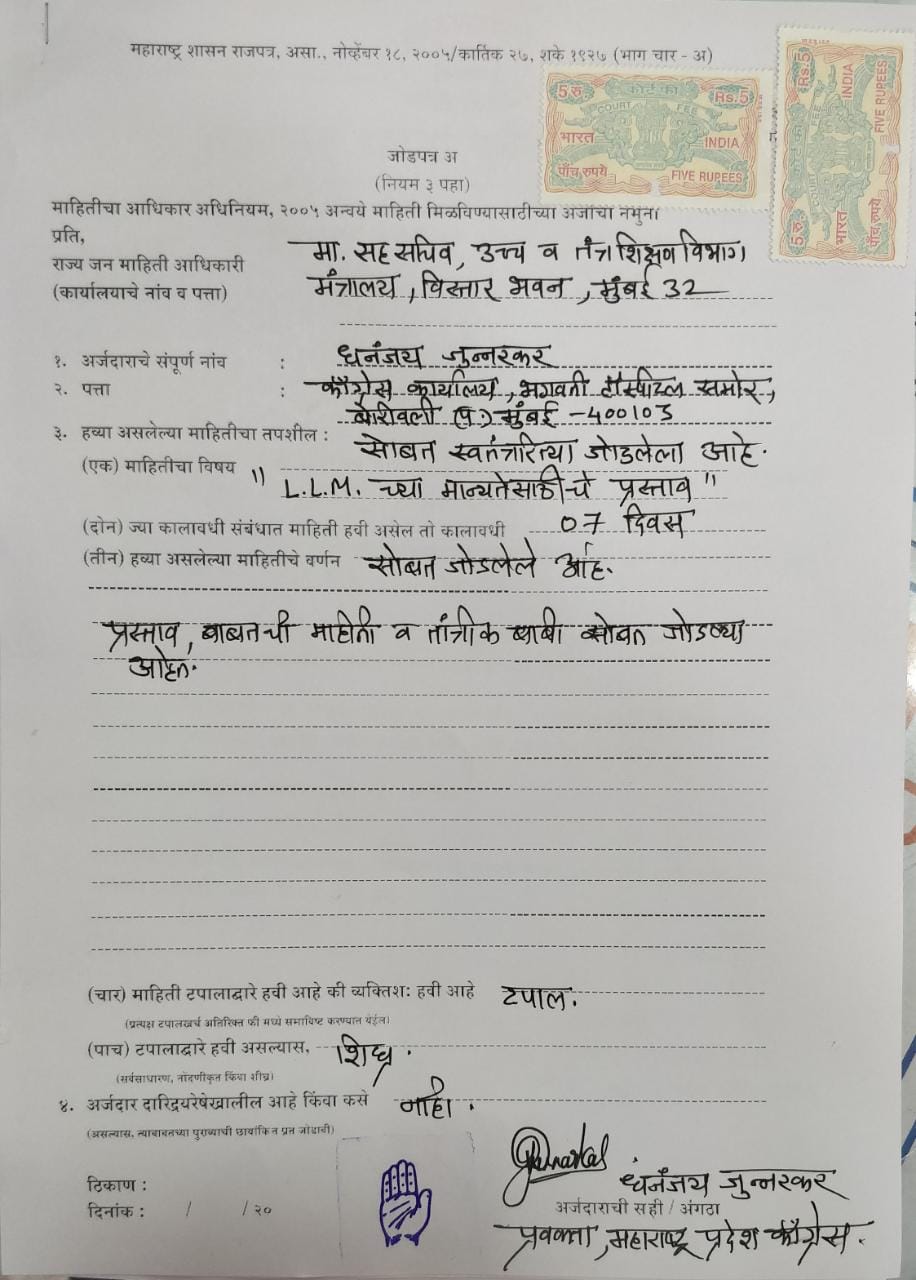 महाराष्ट्र शासन राजपत्र, असा., नोव्हेंबर १८, २००५/कार्तिक २७, शके १९२७ (भाग चार - अ)
5 रु. कोर्ट फी Rs.5
COURT FEE
भारत INDIA
पाँच रुपये FIVE RUPEES
5 रु. कोर्ट फी Rs.5
COURT FEE
भारत INDIA
पाँच रुपये FIVE RUPEES
जोडपत्र अ
(नियम ३ पहा)
माहितीचा आधिकार अधिनियम, २००५ अन्वये माहिती मिळविण्यासाठीच्या अर्जाचा नमुना
प्रति,
राज्य जन माहिती आधिकारी मा. सह सचिव, उच्च व तंत्र शिक्षण विभाग
(कार्यालयाचे नांव व पत्ता) मंत्रालय, विस्तार भवन, मुंबई 32
१. अर्जदाराचे संपूर्ण नांव : धनंजय जुन्नरकर
२. पत्ता : काँग्रेस कार्यालय, भगवती हॉस्पीटल समोर,
बोरीवली (प.) मुंबई - 400103
३. हव्या असलेल्या माहितीचा तपशील : सोबत स्वतंत्ररित्या जोडलेला आहे.
(एक) माहितीचा विषय " L.L.M. च्या मान्यतेसाठीचे प्रस्ताव "
(दोन) ज्या कालावधी संबंधात माहिती हवी असेल तो कालावधी 07 दिवस
(तीन) हव्या असलेल्या माहितीचे वर्णन सोबत जोडलेले आहे.
प्रस्ताव, बाबतची माहीती व तांत्रीक बाबी सोबत जोडल्या
आहेत.
(चार) माहिती टपालाद्वारे हवी आहे की व्यक्तिश: हवी आहे टपाल.
(प्रत्यक्ष टपालखर्च अतिरिक्त फी मध्ये समाविष्ट करण्यात येईल)
(पाच) टपालाद्वारे हवी असल्यास, शिघ्र.
(सर्वसाधारण, नोंदणीकृत किंवा शीघ्र)
४. अर्जदार दारिद्रयरेषेखालील आहे किंवा कसे नाही.
(असल्यास, त्याबाबतच्या पुराव्याची छायांकित प्रत जोडावी)
धनंजय जुन्नरकर
ठिकाण :
अर्जदाराची सही / अंगठा
दिनांक : / /२०
प्रवक्ता, महाराष्ट्र प्रदेश काँग्रेस.